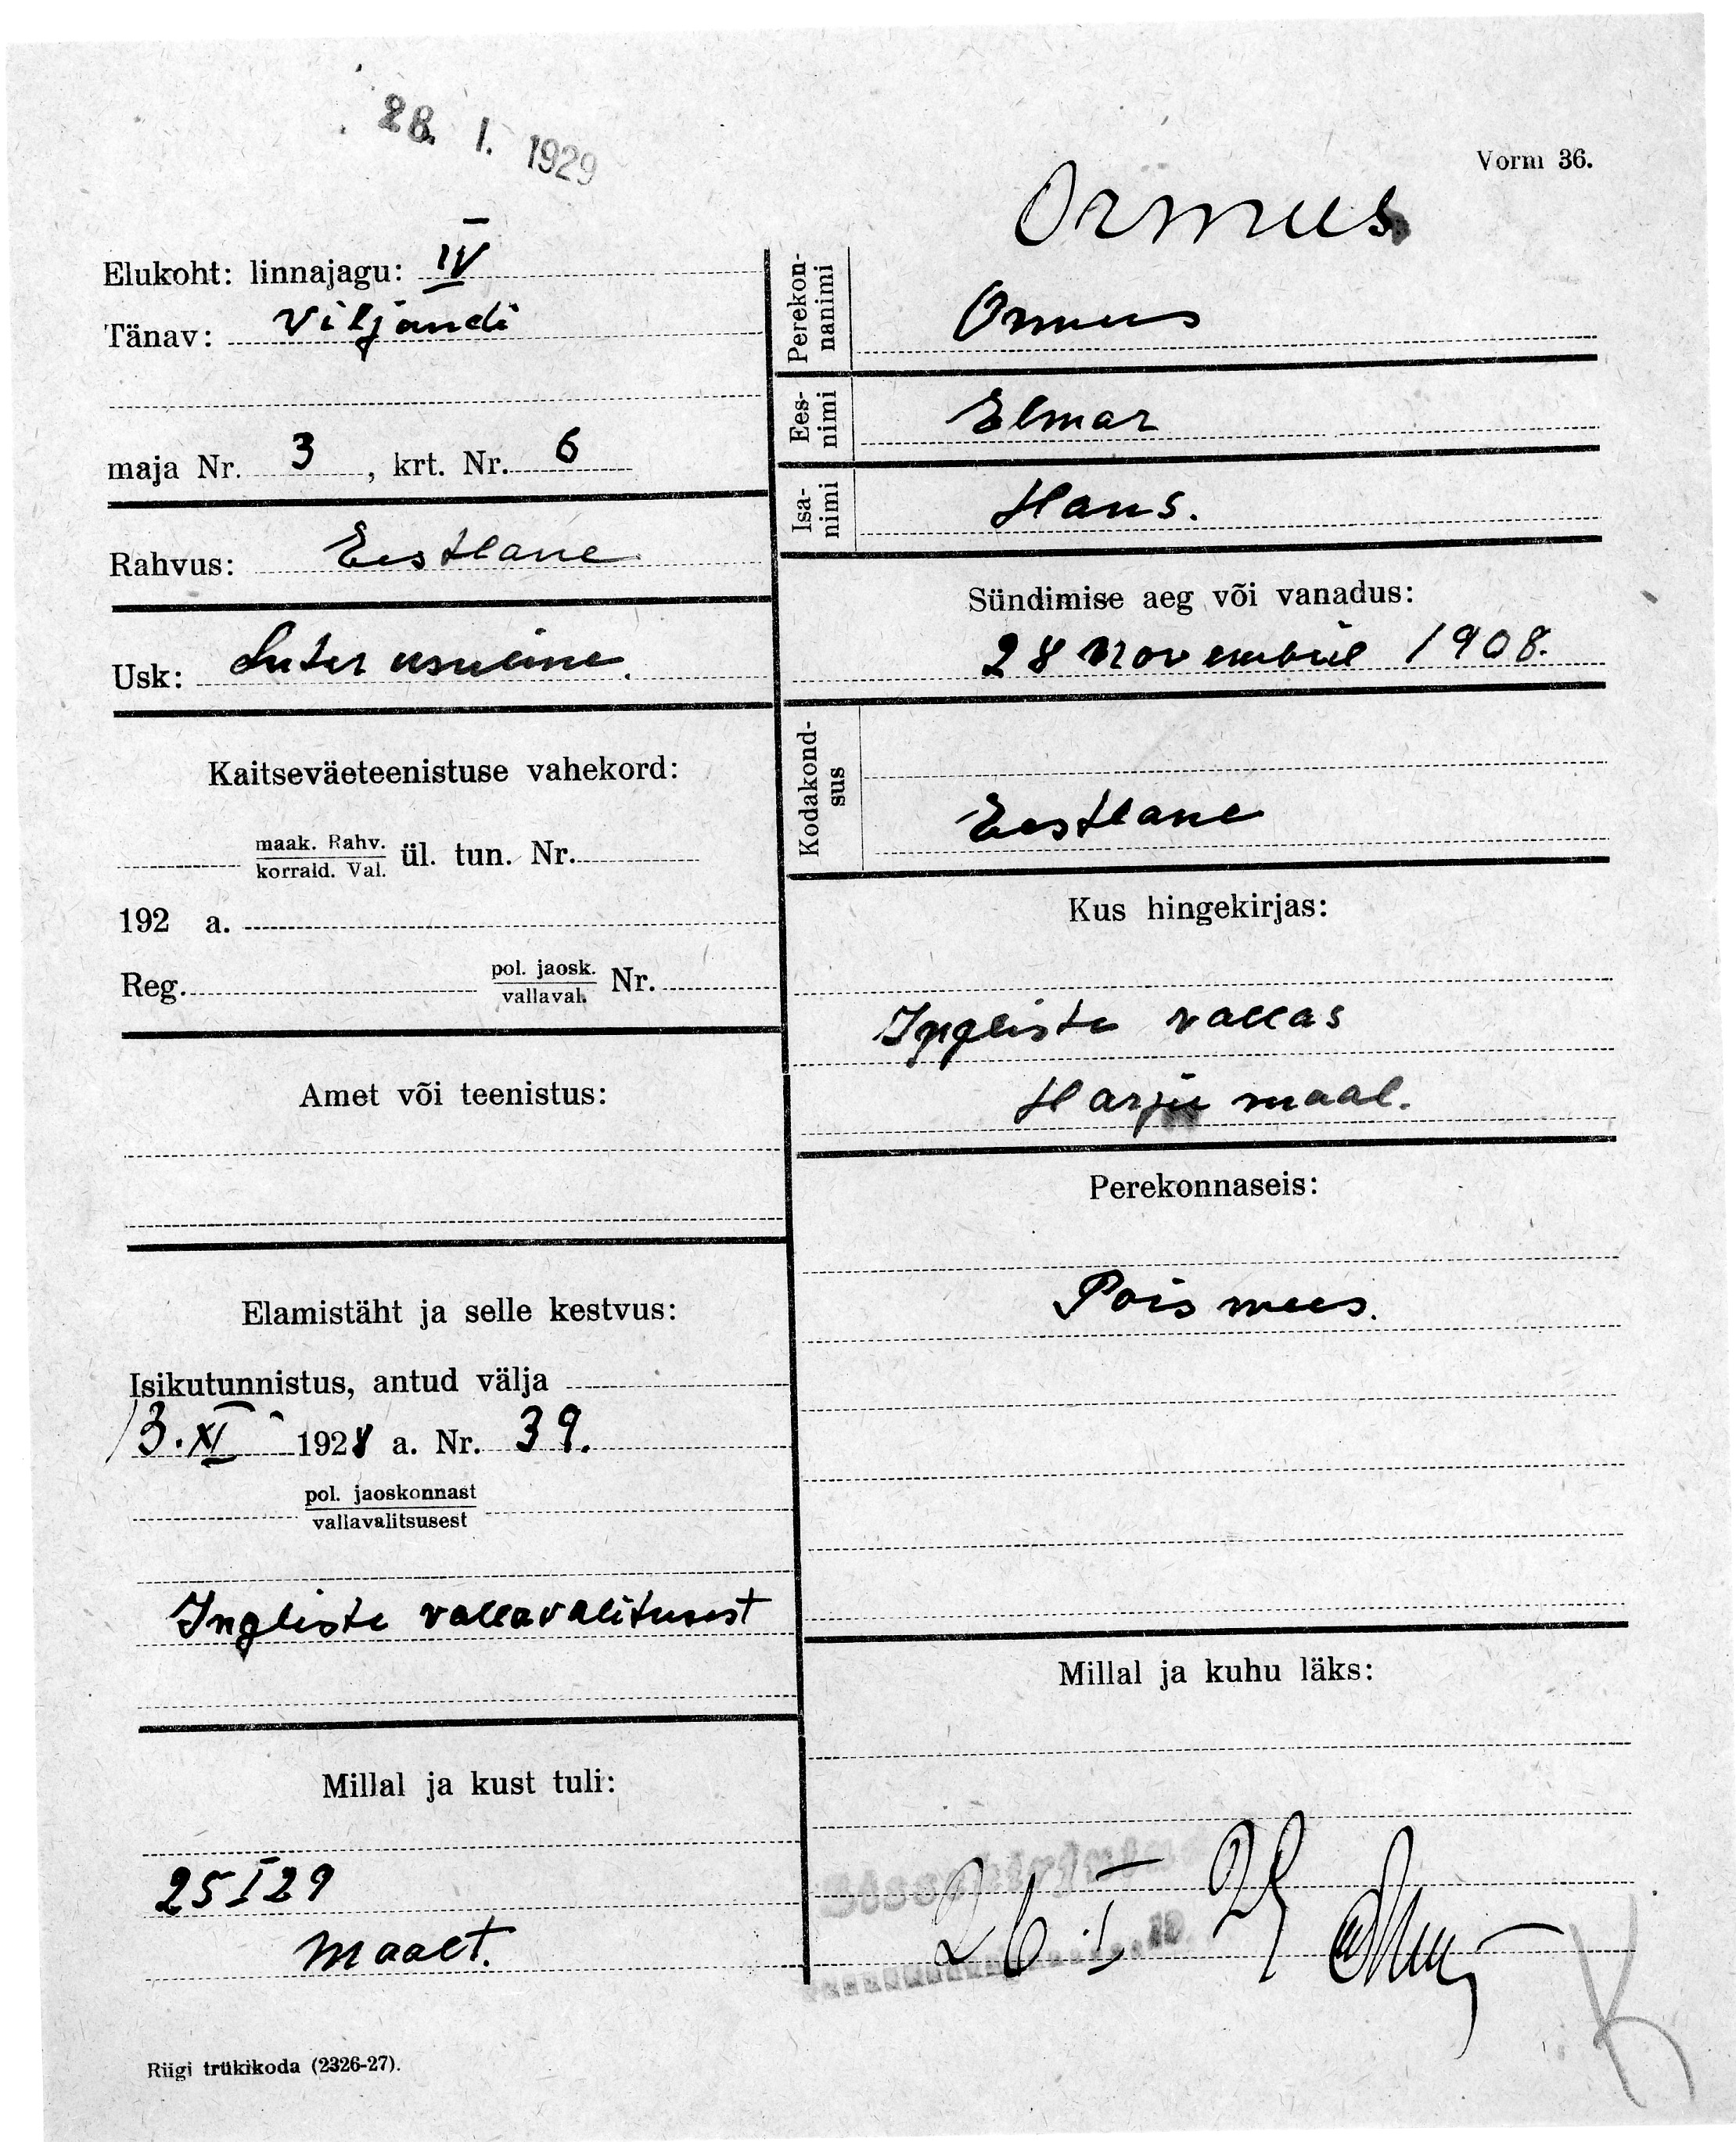 28. I. 1929
Vorm 36.
Ormus
Elukoht: linnajagu: IV
Tänav: Viljandi
maja Nr. 3, krt. Nr. 6
Rahvus: Eestlane
Usk: Luter usuline.
Kaitseväeteenistuse vahekord:
maak. Rahv.
korrald. Val.
ül. tun. Nr.
192 a.
Reg. pol. jaosk. Nr.
vallaval.
Amet või teenistus:
Elamistäht ja selle kestvus:
Isikutunnistus, antud välja
13. XI 1928 a. Nr. 39.
pol. jaoskonnast
vallavalitsusest
Ingliste vallavalitusest
Millal ja kust tuli:
25 I 29
maalt.
Perekon-
nanimi
Ormus
Ees-
nimi
Elmar
Isa-
nimi
Hans.
Sündimise aeg või vanadus:
28 Novembril 1908.
Kodakond-
sus
Eestlane
Kus hingekirjas:
Ingliste vallas
Harju maal.
Perekonnaseis:
Pois mees.
Millal ja kuhu läks:
Sissekirjutus
26. I 29
19
K
Riigi trükikoda (2326-27).